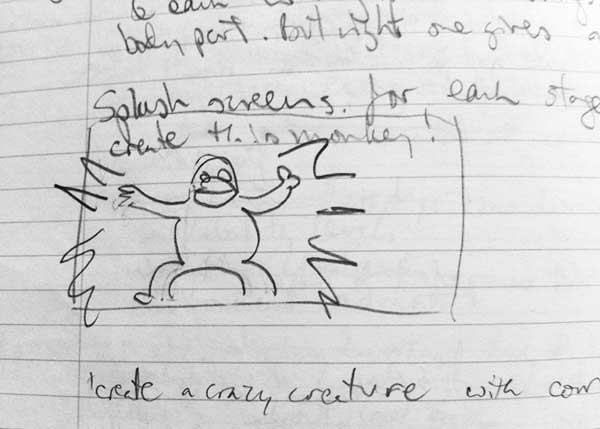 6 each
body part. But right one gives a
Splash screens. for each stage
create this monkey!
'create a crazy creature with com